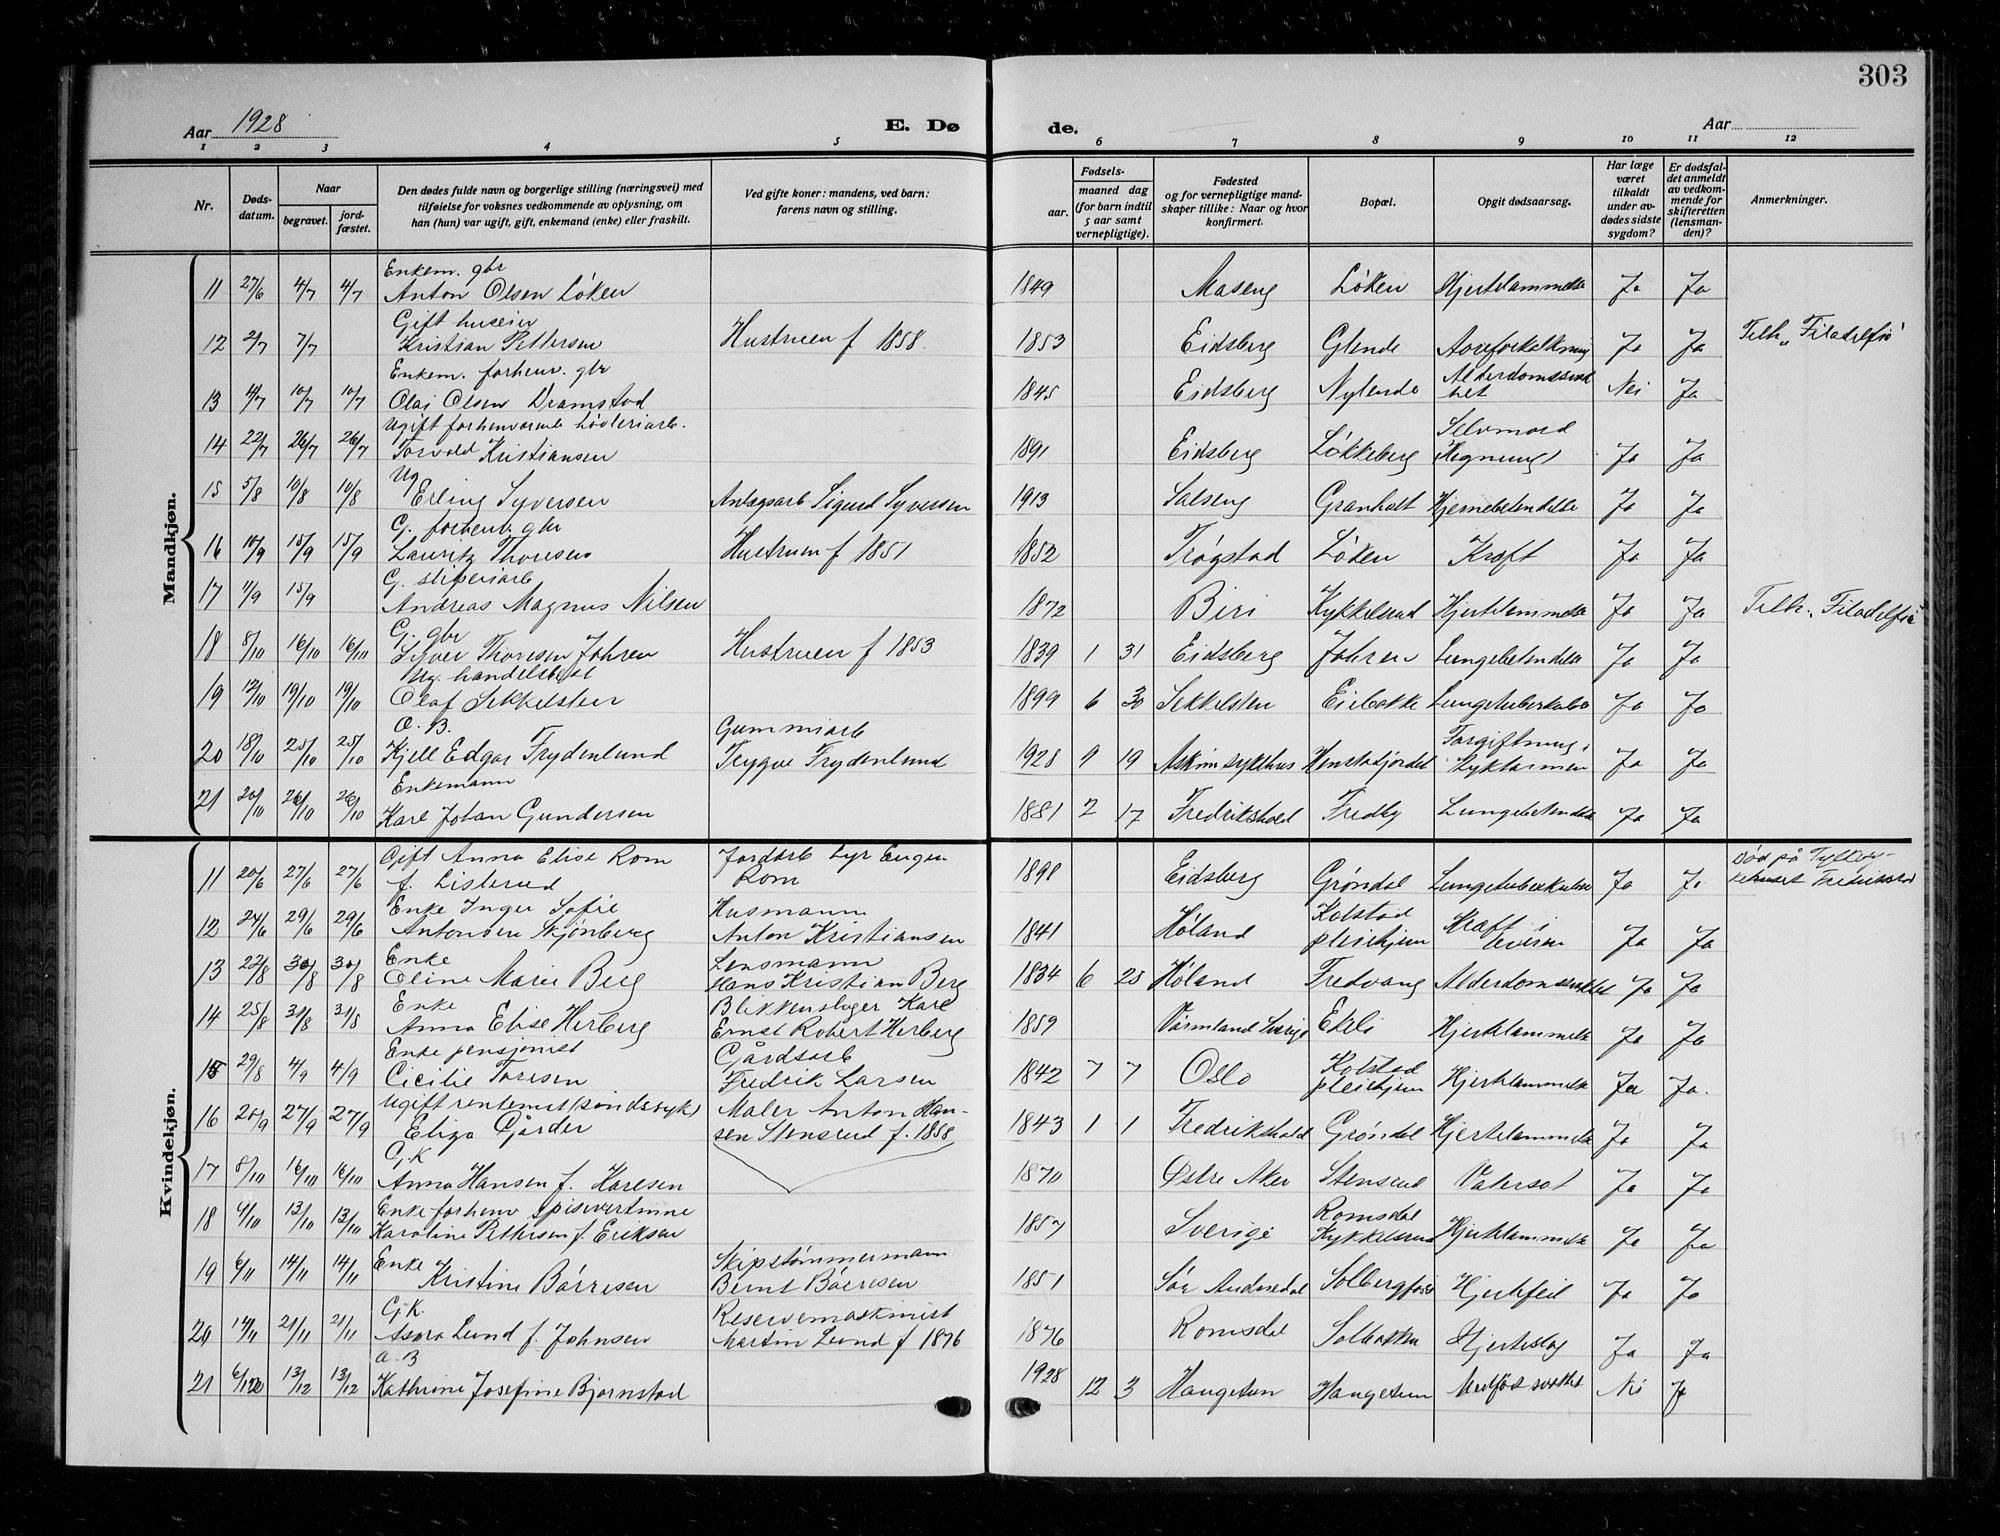 303
Aar 1928
E. Dø
de.
Aar
1 2 3 4 5 6 7 8 9 10 11 12
Nr.
Døds-
datum.
Naar
begravet.
jord-
fæstet.
Den dødes fulde navn og borgerlige stilling (næringsvei) med
tilføielse for voksnes vedkommende av oplysning, om
han (hun) var ugift, gift, enkemand (enke) eller fraskilt.
Ved gifte koner: mandens, ved barn:
farens navn og stilling.
Fødsels-
aar.
maaned dag
(for barn indtil
5 aar samt
vernepligtige).
Fødested
og for vernepligtige mand-
skaper tillike: Naar og hvor
konfirmert.
Bopæl.
Opgit dødsaarsag.
Har læge
været
tilkaldt
under av-
dødes sidste
sygdom?
Er dødsfal-
det anmeldt
av vedkom-
mende for
skifteretten
(lensman-
den)?
Anmerkninger.
Mandkjøn.
Enkem. gbr
11 27/6 4/7 4/7 Anton Olsen Løken 1849 Maseng Løken Hjertelammelse Ja Ja
Gift huseier
12 2/7 7/7 Kristian Pettersen Hustruen f 1858. 1853 Eidsberg Glende Aareforkalkning Ja Ja Tilh. "Filadelfia"
Enkem. forhenv. gbr
13 4/7 10/7 10/7 Olai Olsen Dramstad 1845 Eidsberg Nylende Alderdomssvak
het Nei Ja
Ugift forhenværende
14 22/7 26/7 26/7 Torvald Kristiansen 1891 Eidsberg Løkkeberg Selvmord
(Hegning) Ja Ja
Ug
15 5/8 10/8 10/8 Erling Syversen Anlægsarb Sigurd Syversen 1913 Salseng Granholt Hjernebetendelse Ja Ja
G. forhenv. gbr
16 10/9 15/9 15/9 Lauritz Thoresen Hustruen f 1851 1852 Trøgstad Løken Kræft Ja Ja
G. sliperiarb
17 11/9 15/9 Andreas Magnus Nilsen 1872 Biri Kykkelsrud Hjertelammelse Ja Ja Tilh. "Filadelfia"
G. gbr
18 8/10 16/10 16/10 Syver Thoresen Jahren Hustruen f 1853 1839 1 31 Eidsberg Jahren Lungebetendelse Ja Ja
Ug. handelsbest
19 12/10 19/10 19/10 Olaf Sekkelsten 1899 6 30 Sekkelsten Eiebakke Lungetuberkulose Ja Ja
O. B. Gummiarb
20 18/10 25/10 25/10 Kjell Edgar Frydenlund Trygve Frydenlund 1928 9 19 Askim sykehus Henstadjordet Forgiftning i
tyktarmen Ja Ja
Enkemann
21 20/10 26/10 26/10 Karl Johan Gundersen 1881 2 17 Fredrikshald Fredly Lungebetendelse Ja Ja
Kvindekjøn.
11 20/6 27/6 27/6 Gift Anna Elise Rom
f. Listerud Jordarb Syr Eugen
Rom 1898 Eidsberg Grøndal Lungetuberkulose Ja Ja Død på
Fredrikstad
12 24/6 29/6 29/6 Enke Inger Sofie
Antonsen Skjønberg Husmann
Anton Kristiansen 1841 Høland Kolstad
pleiehjem Kræft i
leveren Ja Ja
13 22/8 30/8 30/8 Enke
Oline Marie Berg Lensmann
Hans Kristian Berg 1834 6 25 Høland Fredvang Alderdomssvakhet Ja Ja
14 25/8 31/8 31/8 Enke
Anna Elise Herberg Blikkenslager Karl
Ernst Robert Herberg 1859 Värmland Sverige Ekeli Hjertelammelse Ja Ja
15 29/8 4/9 4/9 Enke pensjonist
Cicilie Toresen Gårdsarb
Fredrik Larsen 1842 7 7 Oslo Kolstad
pleiehjem Hjertelammelse Ja Ja.
16 20/9 27/9 27/9 Ugift rentenist (sindssyk)
Eliza Gjørder Maler Anton Han-
sen Stensrud f. 1858 1843 1 1 Fredrikshald Grøndal Hjertelammelse Ja Ja
17 8/10 16/10 16/10 G.K
Anna Hansen f. Karlsen 1870 Østre Aker Stensrud Vatersot Ja Ja
18 9/10 13/10 13/10 Enke forhenv spisevertinne
Karoline Pettersen f. Eriksen 1857 Sverige Romsdal
Kykkelsrud Hjertelammelse Ja Ja
19 6/11 14/11 14/11 Enke
Kristine Børresen Skipstømmermann
Bernt Børresen 1851 Sør Audnedal Solbergfoss Hjertefeil Ja Ja
20 14/11 21/11 21/11 G.K.
Asora Lund f. Johnsen Reservemaskinist
Martin Lund f 1876 1876 Romsdal Solbakken Hjerteslag Ja Ja
21 6/12 13/12 13/12 O.B
Kathrine Josefine Bjørnstad 1928 12 3 Haugetun Haugetun Medfødt svakhet Nei Ja